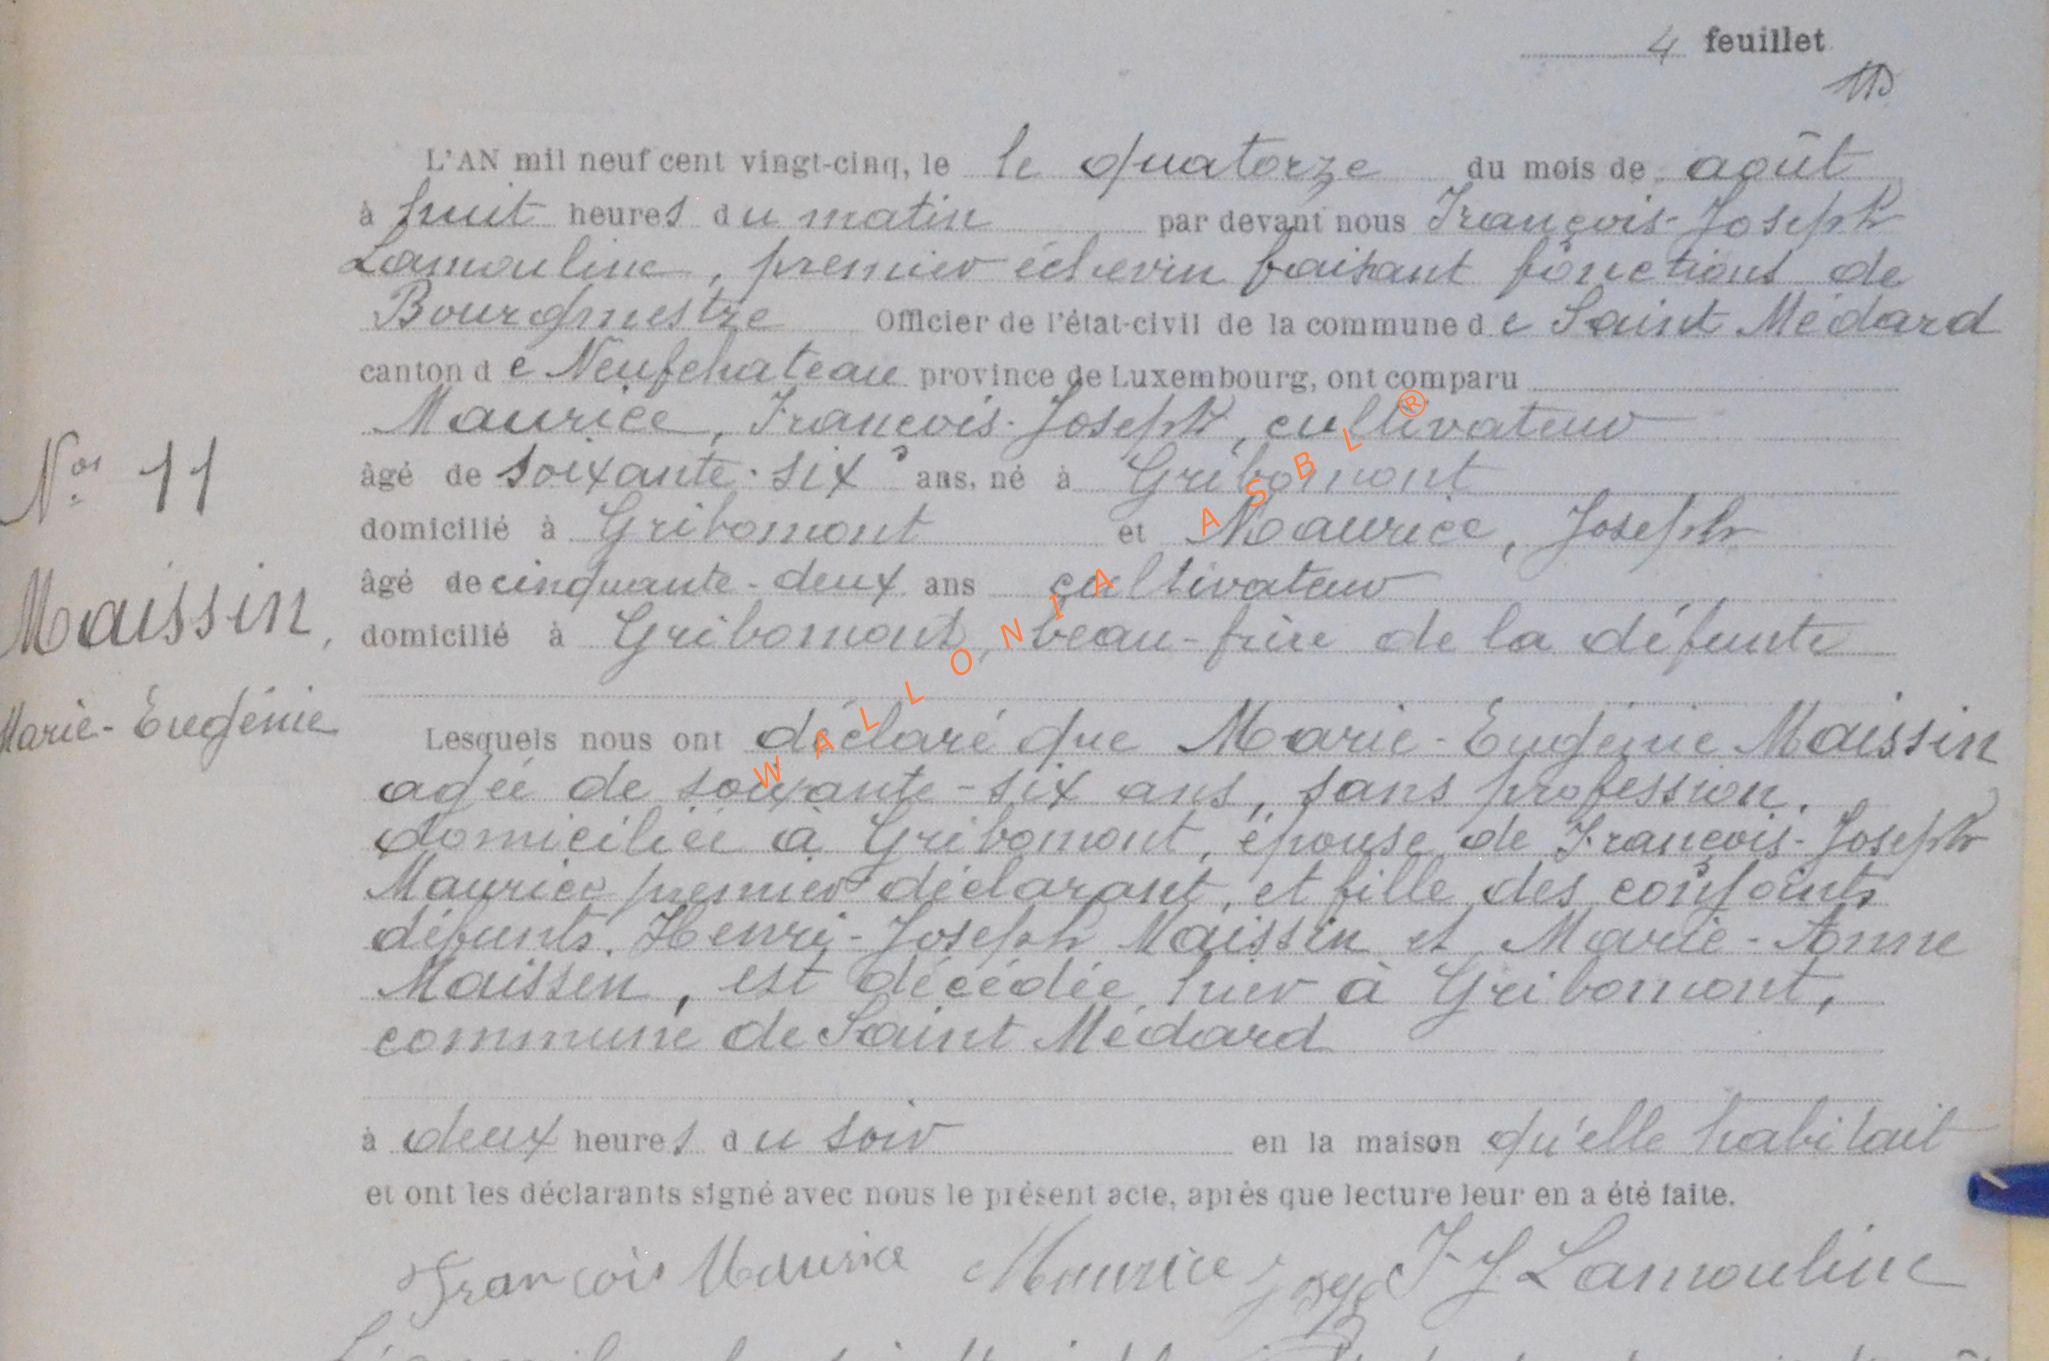 4 feuillet
L'AN mil neuf cent vingt-cinq, le le quatorze du mois de août
à huit heures du matin par devant nous François-Joseph
Lamouline, premier échevin faisant fonctions de
Bourgmestre Officier de l'état-civil de la commune de Saint Médard
canton de Neufchateau province de Luxembourg, ont comparu
Maurice, François-Joseph, cultivateur
âgé de soixante-six ans, né à Gribomont
domicilié à Gribomont et Maurice, Joseph
âgé de cinquante-deux ans cultivateur
domicilié à Gribomont, beau-frère de la défunte
Nos 11
Maissin,
Marie-Eugénie
Lesquels nous ont déclaré que Marie-Eugénie Maissin
agée de soixante-six ans, sans profession,
domiciliée à Gribomont, épouse de François-Joseph
Maurice premier déclarant, et fille des conjoints
défunts. Henri-Joseph Maissin et Marie-Anne
Maissen, est décédée hier à Gribomont,
commune de Saint Médard
à deux heures du soir en la maison qu'elle habitait
et ont les déclarants signé avec nous le présent acte, après que lecture leur en a été faite.
François Maurice Maurice Josep F J Lamouline
WALLONIA ASBL ®